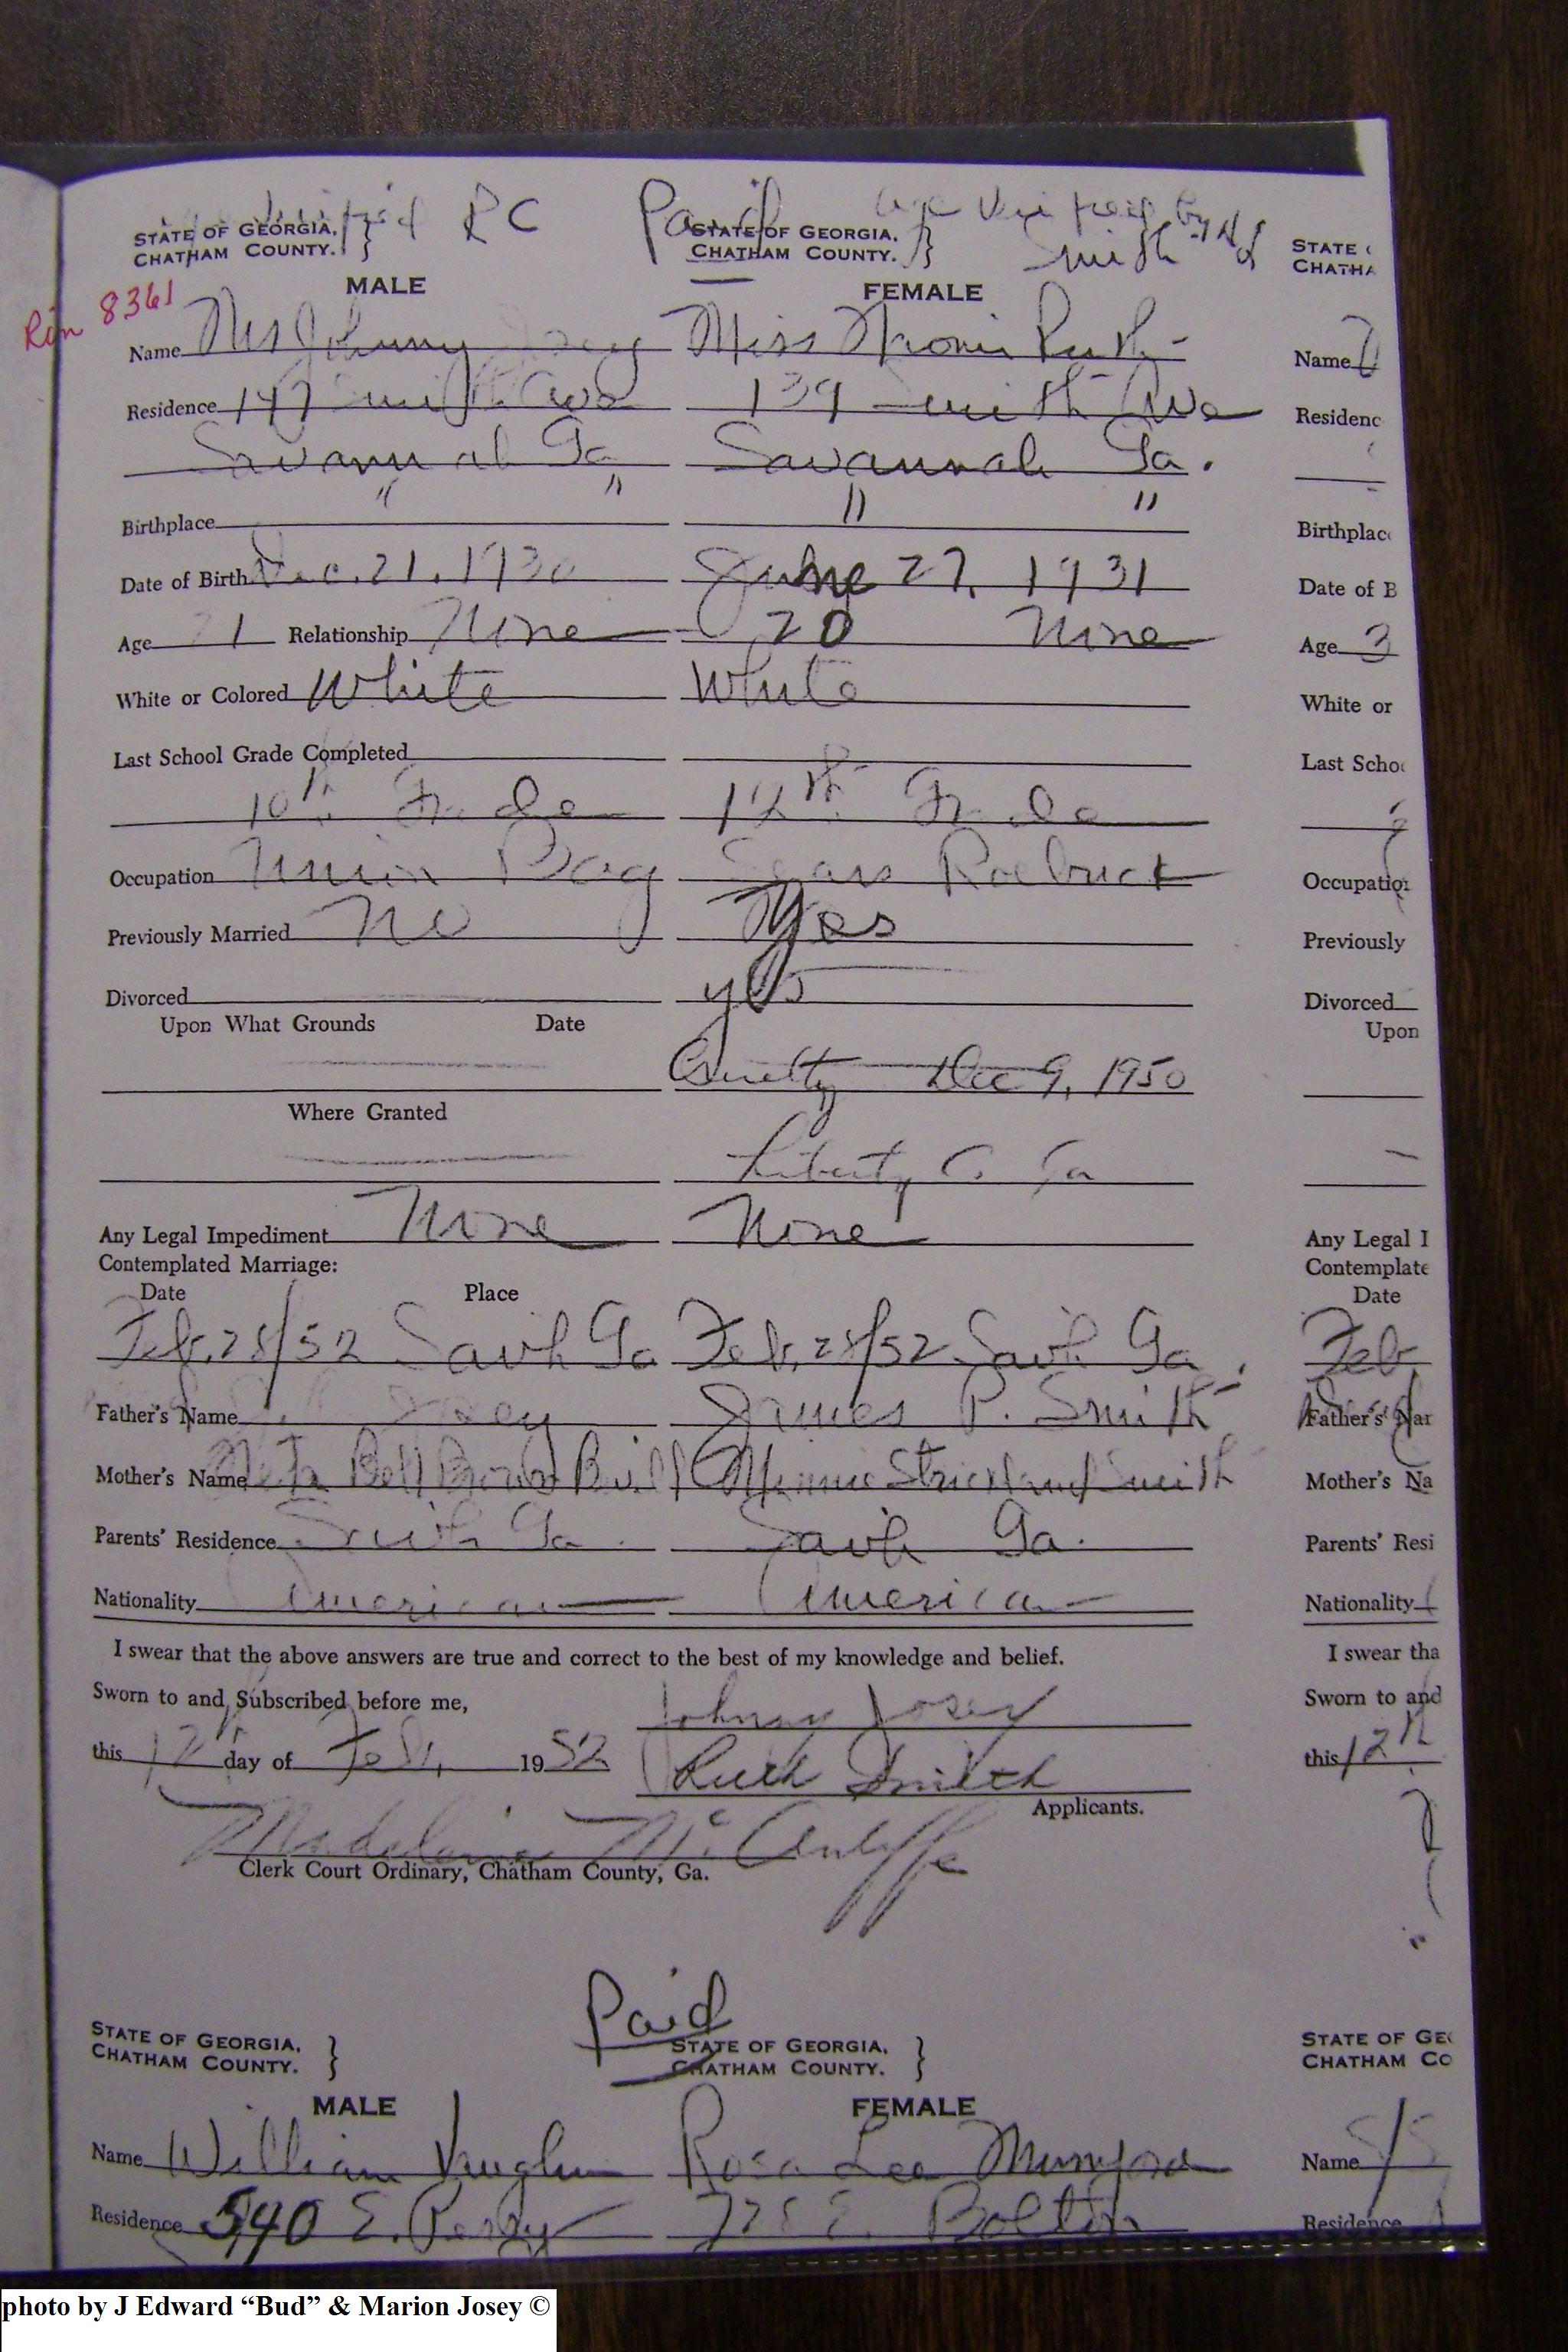 RC Paid
STATE OF GEORGIA, } STATE OF GEORGIA, } Smith
CHATHAM COUNTY. CHATHAM COUNTY.
MALE FEMALE
Rin 8361
Name Mr Johnny Josey Miss Naomi Ruth
Residence 147 Smith Ave 139 Smith Ave
Savannah Ga Savannah Ga.
" " " "
Birthplace
Date of Birth Dec. 21, 1930 June 27, 1931
Age 21 Relationship None 20 None
White or Colored White White
Last School Grade Completed
10th Grade 12th Grade
Occupation Union Bag Sears Roebuck
Previously Married No Yes
Divorced yes
Upon What Grounds Date
Cruelty Dec 9, 1950
Where Granted
Liberty Co Ga
Any Legal Impediment None None
Contemplated Marriage:
Date Place
Feb. 28/52 Savh Ga Feb. 28/52 Savh Ga.
Father's Name Josey James P. Smith
Mother's Name Bell Brown Minnie Strickland Smith
Parents' Residence Savh Ga. Savh Ga.
Nationality American American
I swear that the above answers are true and correct to the best of my knowledge and belief.
Sworn to and Subscribed before me, Johnny Josey
this 12th day of Feb, 1952 Ruth Smith
Applicants.
Madeleine McAuliffe
Clerk Court Ordinary, Chatham County, Ga.
Paid
STATE OF GEORGIA, } STATE OF GEORGIA, }
CHATHAM COUNTY. CHATHAM COUNTY.
MALE FEMALE
Name William Vaughn Rosa Lee Mumford
Residence 540 E. Perry E. Bolton
STATE
CHATHA
Name
Residenc
Birthplac
Date of B
Age 3
White or
Last Scho
Occupation
Previously
Divorced
Upon
Any Legal I
Contemplate
Date
Feb
Father's Nar
Mother's Na
Parents' Resi
Nationality
I swear tha
Sworn to and
this 12th
STATE OF GE
CHATHAM CO
Name
Residence
photo by J Edward “Bud” & Marion Josey ©